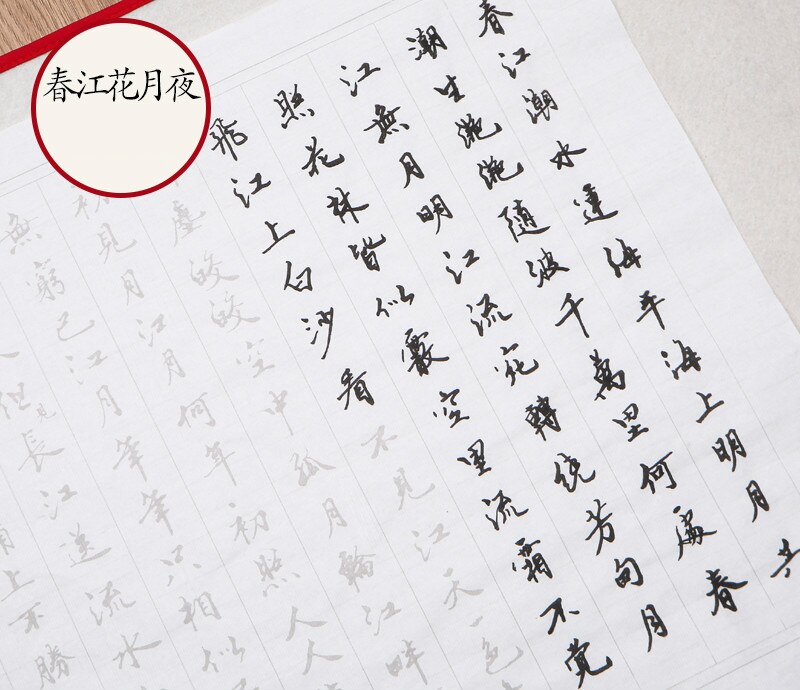 春江花月夜
春江潮水連海平海上明月共
潮生滟滟随波千萬里何處春
江無月明江流宛轉绕芳甸月
照花林皆似霰空里流霜不觉
飛江上白沙看不見江天一色
塵皎皎空中孤月輪江畔
初見月江月何年初照人人
無窮已江月年年只相似
人但見長江送流水
上不勝